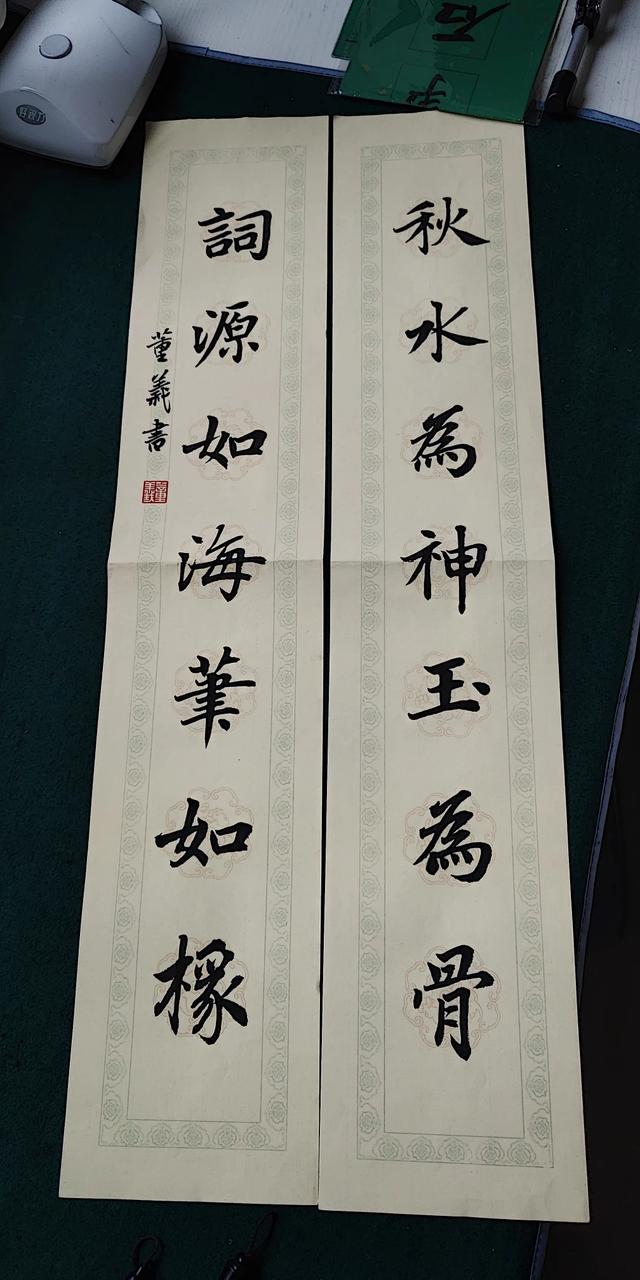 秋水為神玉為骨
詞源如海筆如椽
董義書